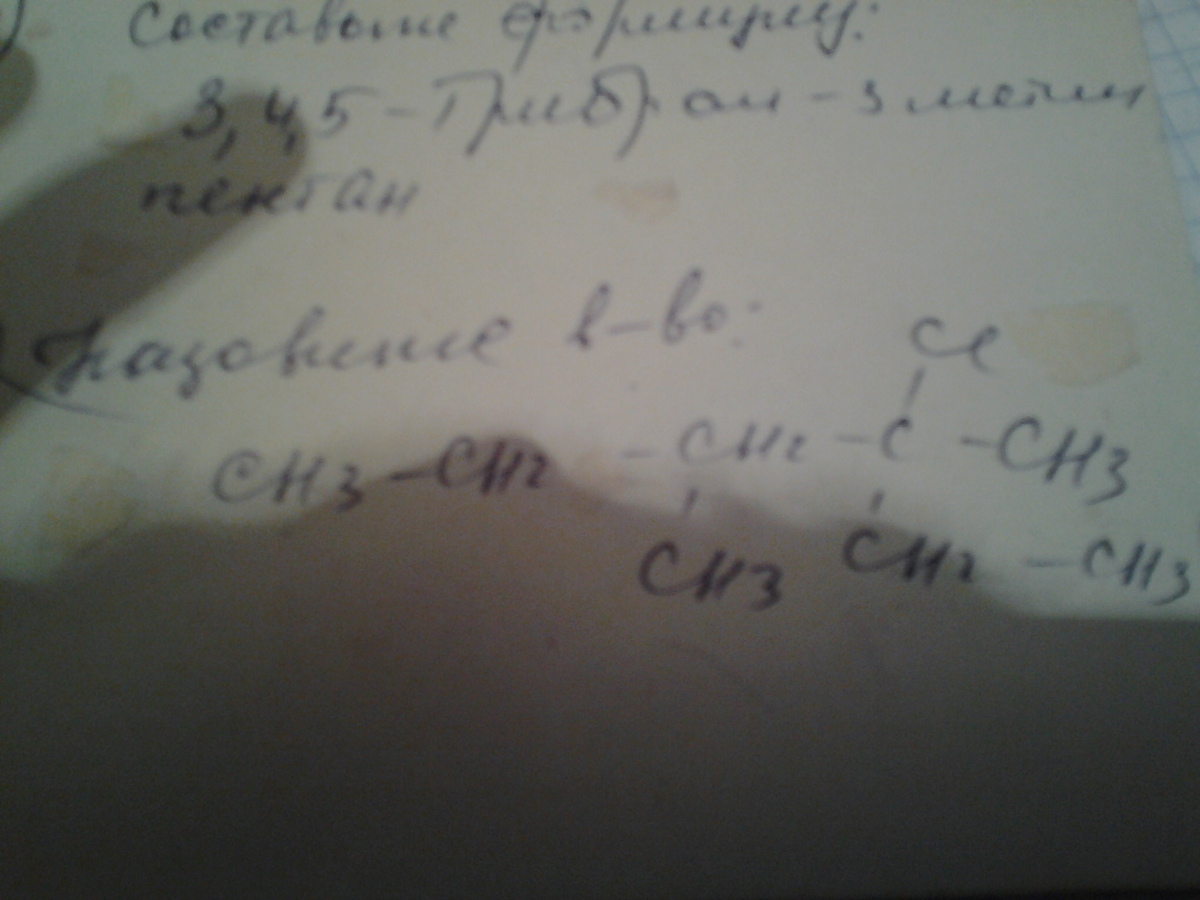 Составьте формулу:
3,4,5 - Трибром - 3 метил
пентан
Назовите в-во:
Cl
CH3 - CH2 - CH2 - C - CH3
CH3 CH2 - CH3